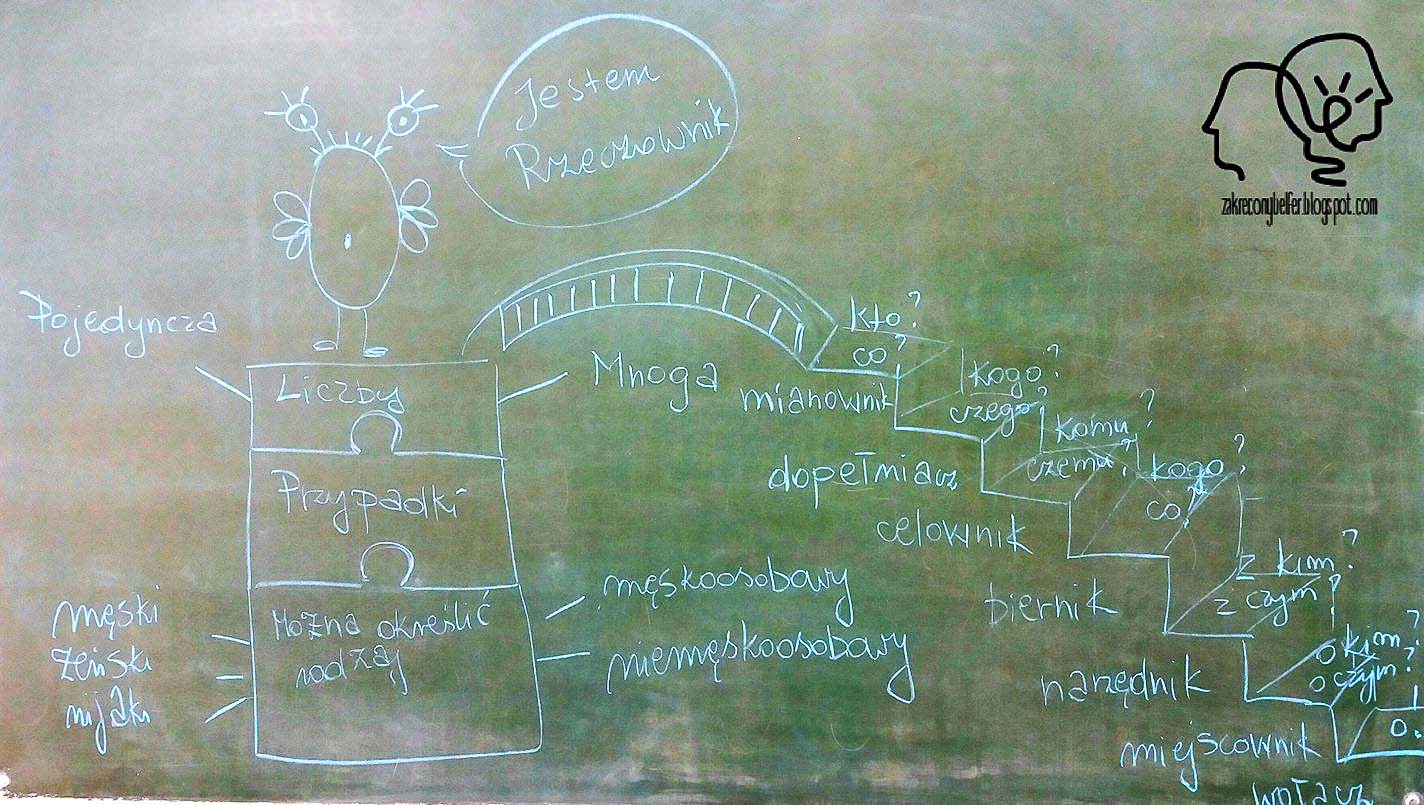 Jestem
Rzeczownik
zakreconybelfer.blogspot.com
Pojedyncza
Liczby
Mnoga
Przypadki
Można określić
rodzaj
męski
żeński
nijaki
męskoosobowy
niemęskoosobowy
kto?
co?
mianownik
kogo?
czego?
dopełniacz
komu?
czemu?
celownik
kogo?
co?
biernik
z kim?
z czym?
narzędnik
o kim?
o czym?
miejscownik
o!
wołacz